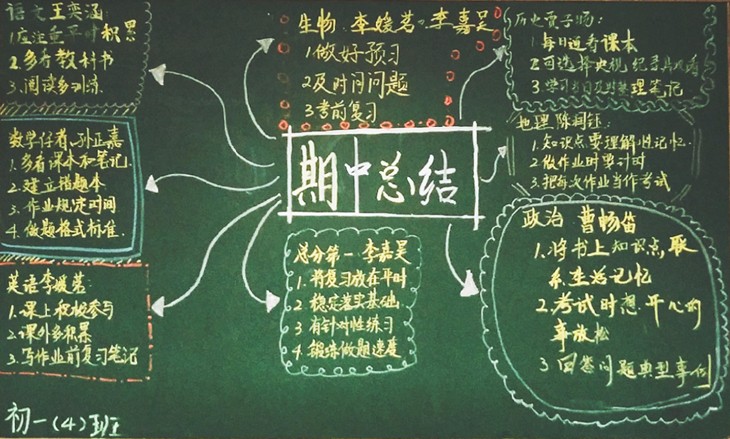 语文王奕涵:
1.应注重平时积累
2.多看教科书
3.阅读多训练
生物:李媛茗、李嘉昊
1.做好预习
2.及时问问题
3.考前复习
历史贾子旸:
1.每日通看课本
2.可选择央视纪录片观看
3.学习
理笔记
数学任君、孙正嘉
1.多看课本和笔记
2.建立错题本
3.作业规定时间
4.做题格式标准.
期中总结
地理:陈柯钰:
1.知识点要理解性记忆.
2.做作业时要计时
3.把每次作业当作考试
英语李媛茗:
1.课上积极参与
2.课外多积累
3.写作业前复习笔记
总分第一 李嘉昊
1.将复习放在平时
2.稳定落实基础.
3.有针对性练习
4.锻炼做题速度
政治 曹畅笛
1.将书上知识点,联
系生活记忆
2.考试时想开心的
事放松
3.回答问题典型事例
初一(4)班